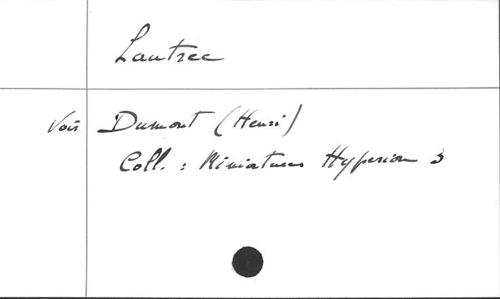 Lautrec
Voir Dumont (Henri)
Coll. : Miniatures Hyperion 3